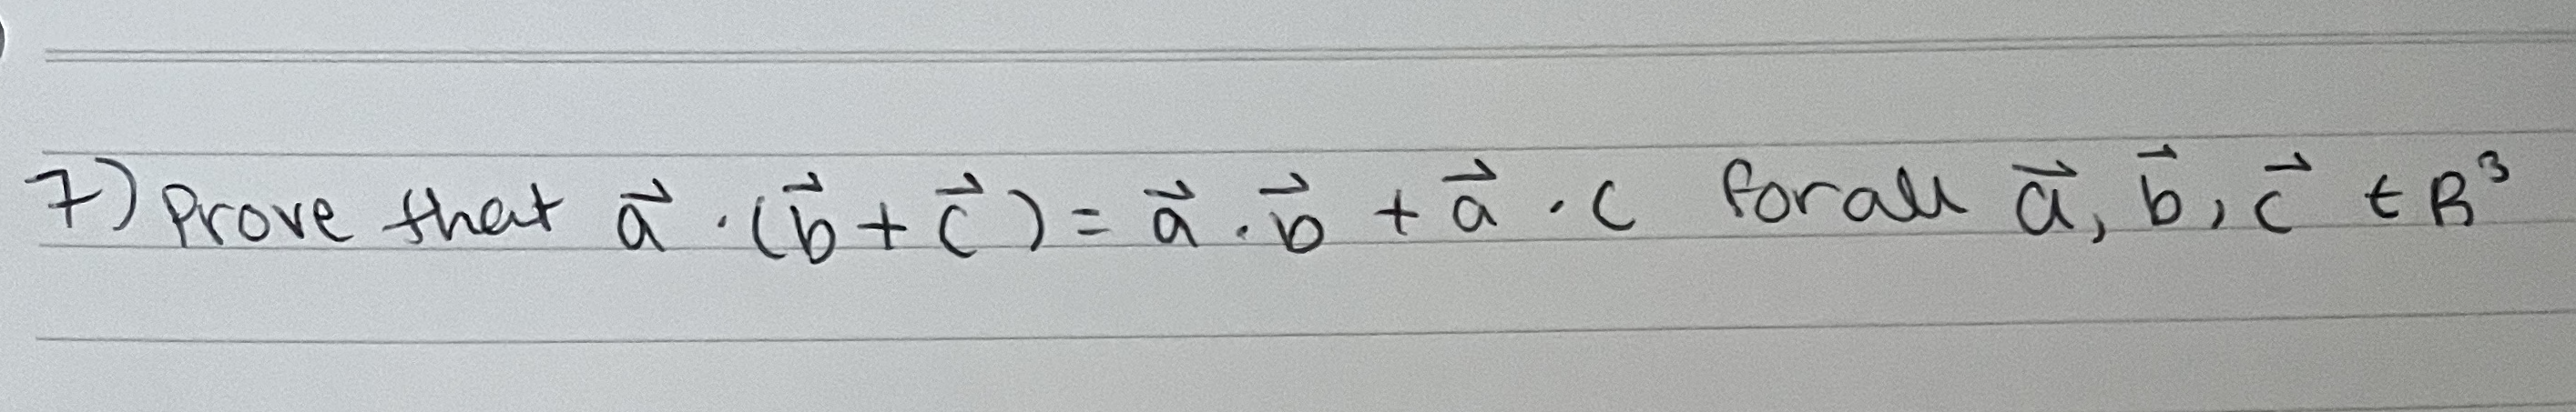 7) Prove that a⃗ · (b⃗ + c⃗) = a⃗ · b⃗ + a⃗ · c for all a⃗, b⃗, c⃗ ∈ R³